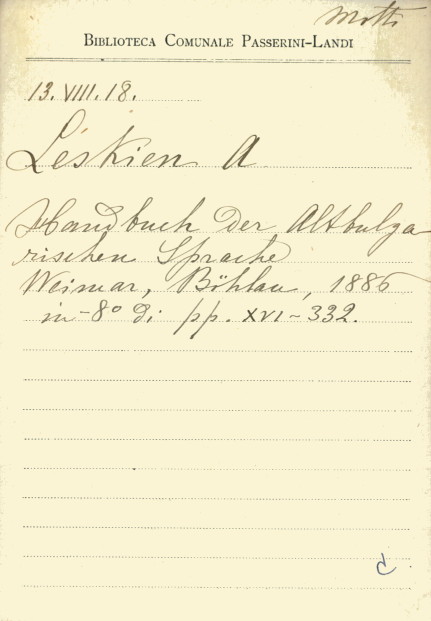 Motti
BIBLIOTECA COMUNALE PASSERINI-LANDI
13. VIII. 18.
Leskien A
Handbuch der Altbulga
rischen Sprache
Weimar, Böhlau, 1886
in-8° di pp. XVI-332.
C